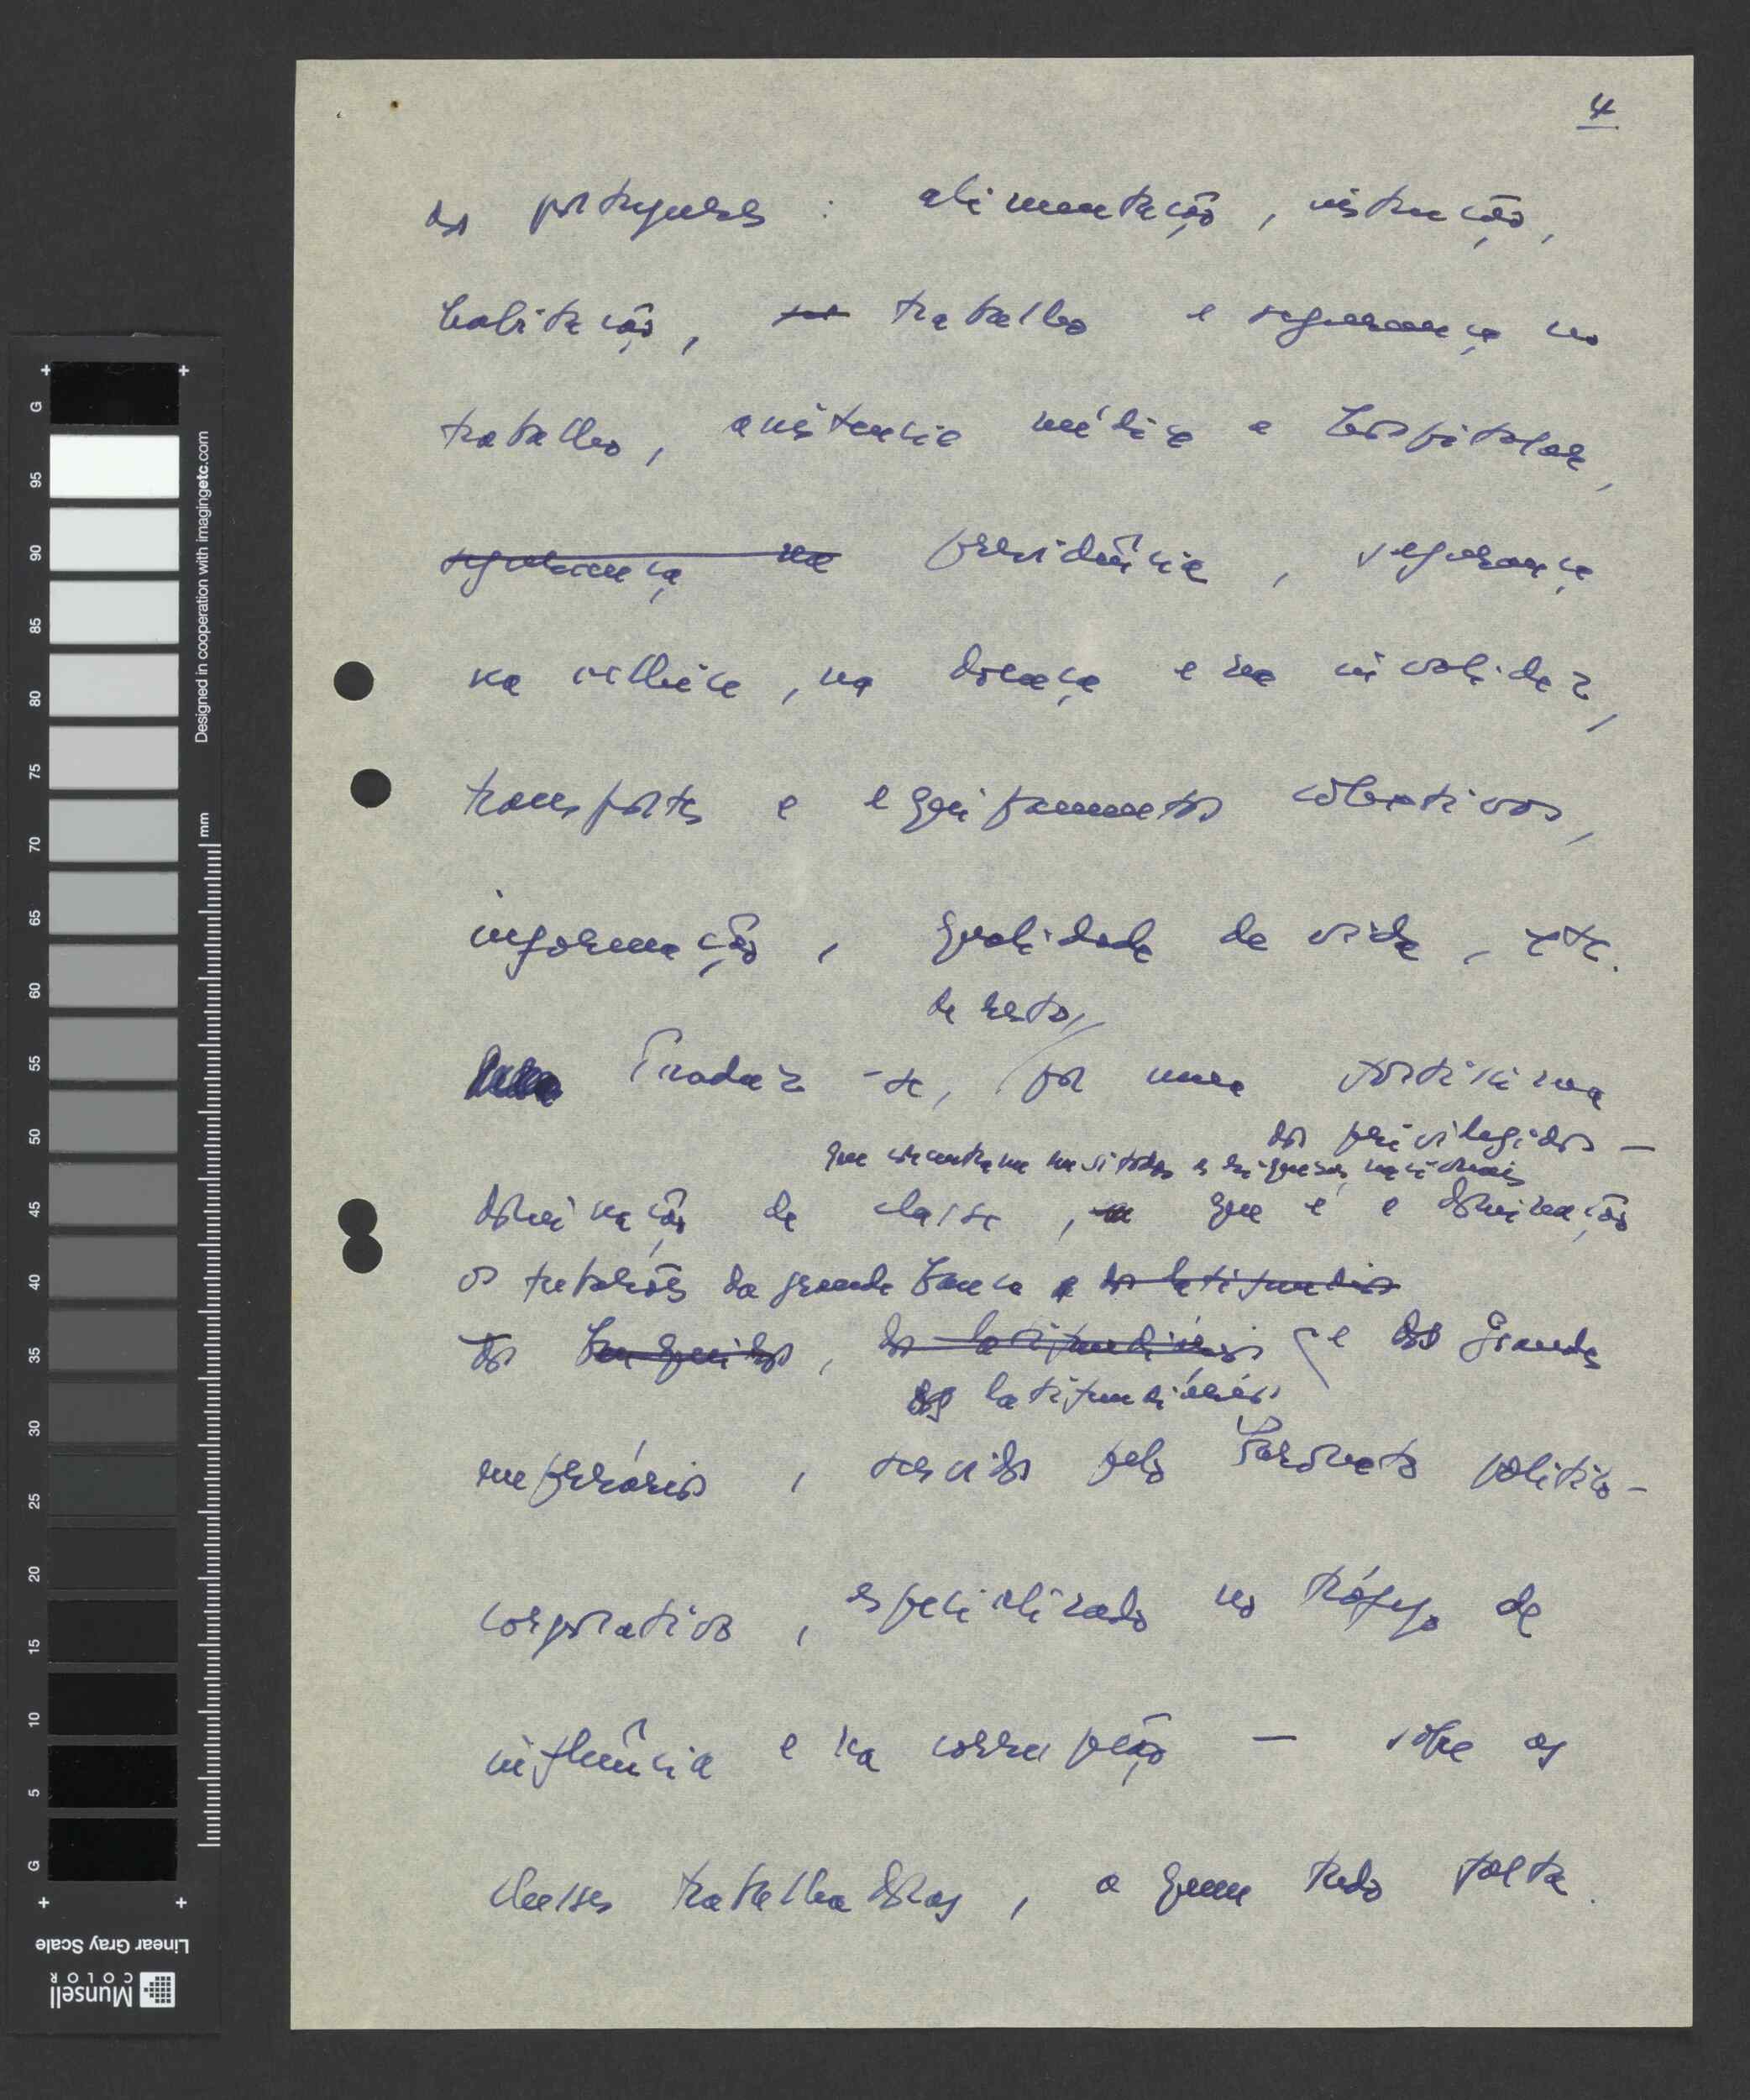 4
dos portugueses : alimentação, instrução,
habitação, trabalho e segurança no
trabalho, assistencia médica e hospitalar,
segurança na previdência, segurança
na velhice, na doença e na invalidez,
transportes e equipamentos colectivos,
informação, qualidade de vida, etc.
de resto,
Traduz-se, por uma fortissima
dos privilegiados —
que concentram nas si todas as riquezas nacionais
dominação de classe, que é a dominação
os tubarões da grande banca e dos latifundios
dos banqueiros, dos latifundiários e dos grandes
dos latifundiários
empresários, servidos pelo politico-
corporativo, especializado no tráfego de
influência e na corrupção — sobre as
classes trabalhadoras, a quem tudo falta.
G
95
90
85
80
75
70
65
60
55
50
45
40
35
30
25
20
15
10
5
G
Designed in cooperation with imagingetc.com
mm
Linear Gray Scale
Munsell
COLOR